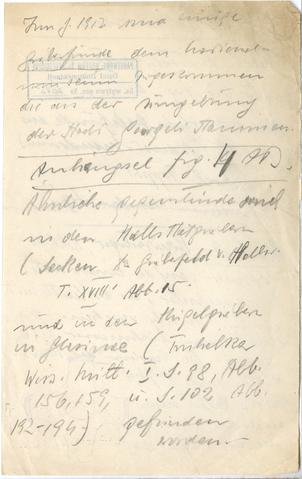 Im J. 1913 sind einige
Grabfunde dem National-
museum zugekommen
die aus der Umgebung
der Stadt Gevgeli stammen.
Anhängsel fig. 4 Ab).
Ähnliche gegenstände sind
in den Hallstattgräbern
(Sacken Grabfeld v. Hallst.
T. XVIII Abb. 15.
und in den Hügelgräben
in Glasinac (Truhelka
Wiss. Mitt. I. S. 98, Abb.
156, 159, u. S. 102 Abb.
192-194) gefunden
worden.-